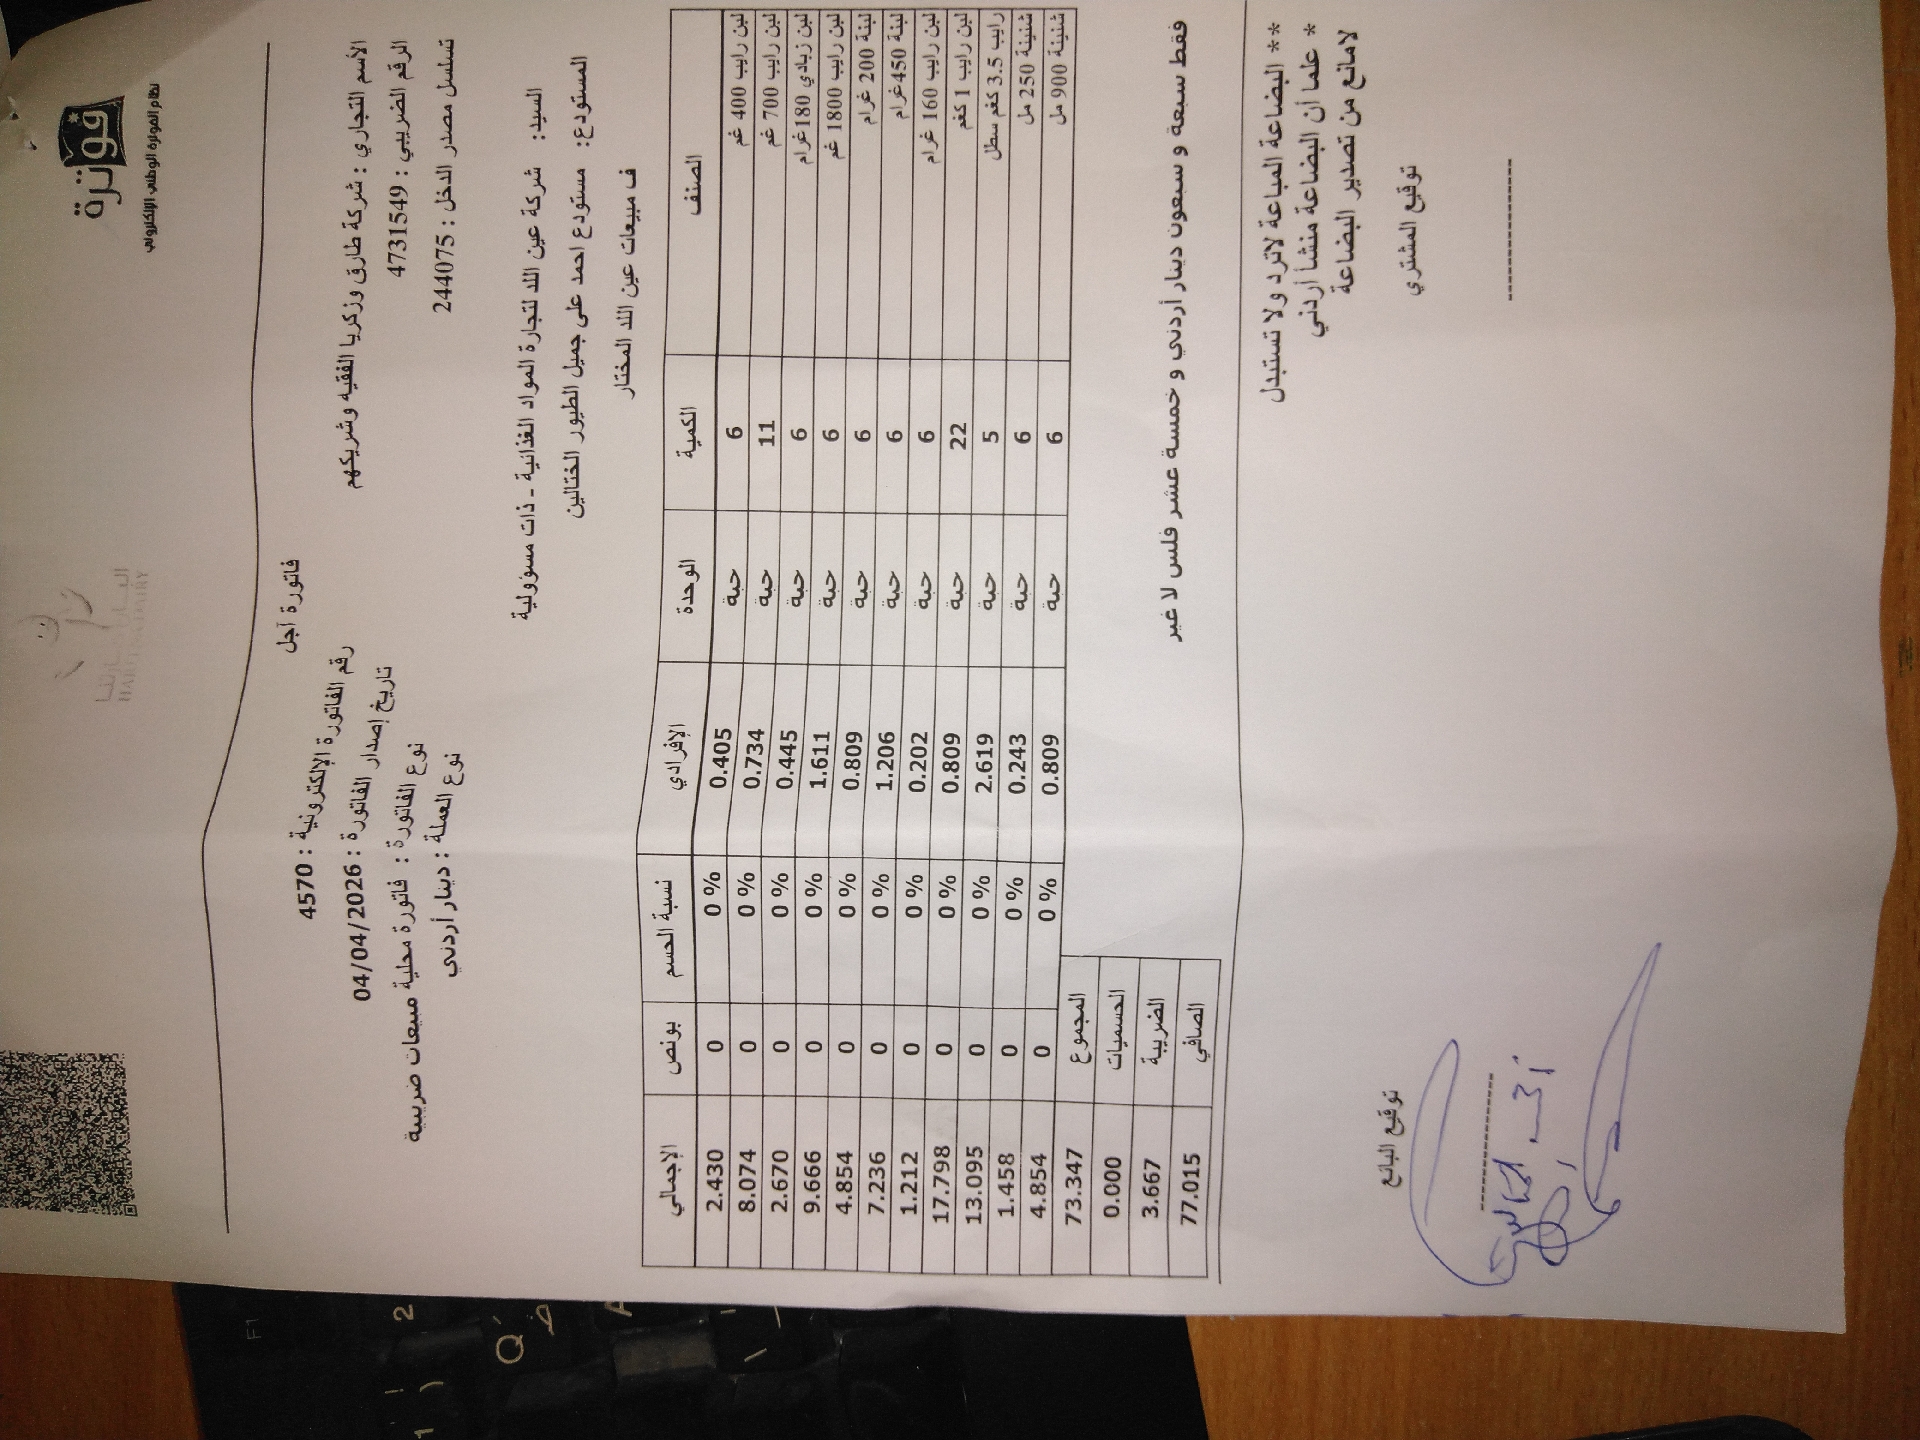 فوترة
نظام الفوترة الوطني الإلكتروني
فاتورة آجل
الأسم التجاري : شركة طارق وزكريا الفقيه وشريكهم
رقم الفاتورة الإلكترونية : 4570
الرقم الضريبي : 4731549
تاريخ إصدار الفاتورة : 04/04/2026
تسلسل مصدر الدخل : 244075
نوع الفاتورة : فاتورة محلية مبيعات ضريبية
نوع العملة : دينار أردني
السيد: شركة عين اللد لتجارة المواد الغذائية - ذات مسؤولية
المستودع: مستودع احمد على جميل الطيور الختالين
ف مبيعات عين اللد المختار
الصنف الكمية الوحدة الإفرادي نسبة الحسم بونص الإجمالي
لبن رايب 400 غم 6 حبة 0.405 0 % 0 2.430
لبن رايب 700 غم 11 حبة 0.734 0 % 0 8.074
لبن زبادي 180غرام 6 حبة 0.445 0 % 0 2.670
لبن رايب 1800 غم 6 حبة 1.611 0 % 0 9.666
لبنة 200 غرام 6 حبة 0.809 0 % 0 4.854
لبنة 450غرام 6 حبة 1.206 0 % 0 7.236
لبن رايب 160 غرام 6 حبة 0.202 0 % 0 1.212
لبن رايب 1 كغم 22 حبة 0.809 0 % 0 17.798
رايب 3.5 كغم سطل 5 حبة 2.619 0 % 0 13.095
شنينة 250 مل 6 حبة 0.243 0 % 0 1.458
شنينة 900 مل 6 حبة 0.809 0 % 0 4.854
المجموع 73.347
الحسميات 0.000
الضريبة 3.667
الصافي 77.015
فقط سبعة و سبعون دينار أردني و خمسة عشر فلس لا غير
** البضاعة المباعة لاترد ولا تستبدل
* علما أن البضاعة منشا أردني
لامانع من تصدير البضاعة
توقيع المشتري
توقيع البائع